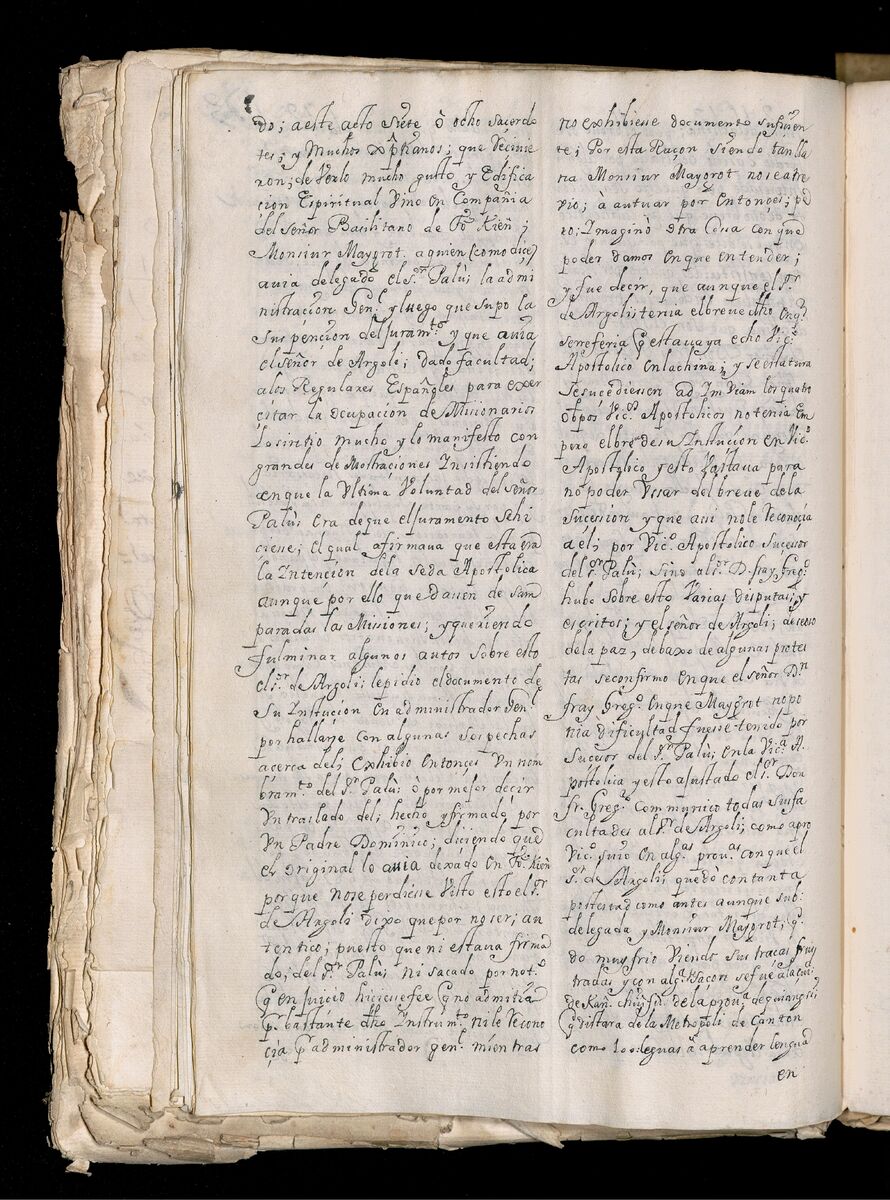 do; aeste acto Siete ò ocho Sacerdo
tes; y Muchos xp̃tianos; que Vecinie
ron; de Verlo mucho gusto y Edifica
cion Espiritual Vino en Compañia
del señor Basilitano de Fo Kien;
Monsiur Maygrot. aquien (como dice)
auia delegado el S.r Palù; la admi
nistracion Gen.l y luego que supo la
Suspencion del Juram.to y que auia
el señor de Argoli; dado facultad;
alos Regulares Españoles para exer
citar la ocupacion de Missionarios
Losintio mucho y lo manifesto con
grandes de Mostraciones Insistiendo
enque la Vltima Voluntad del señor
Palù; era de que el Juramento sehi
ciese; el qual afirmaua que esta era
la Intencion dela seda Apostolica
aunque por ello que dassen de sam
paradas las Missiones; y queriendo
fulminar algunos autos sobre esto
el s.or de Argoli; le pidio el documento de
Su Instucion en administrador Gen.l
por hallarse con algunas sospechas
acerca del; exhibio entonçes Vn nom
bram.to del S.r Palù; ò por mejor decir
Vn traslado del; hecho y firmado por
Vn Padre Dominico; diciendo que
el original lo auia dexado en Fo Kien
porque nose perdiesse Visto esto el S.r
de Argoli dixo que por no ser; au
tentico; puesto que ni estaua firma
do; del S.r Palù; ni sacado por not.o
q en Juicio hiciesefee q no admitia
p.r bastante dho Instrum.to nile Recono
cia p.r administrador gen.l mientras
no exhibiesse documento sufisien
te; Por esta Raçon siendo tan lla
na Monsiur Maygrot nose atre
vio; à autuar por entonçes; pe
ro; Imaginò otra Cosa con que
poder damos en que entender;
y fue decir, que aunque el S.r
de Argolis tenia el breue dho en q
sereferia q estaua ya echo Vic.o
Apostolico enlachina; y se enlatura
Sesucediessen ad Im Viam los quatro
obpos Vic.os Apostolicos no tenia Em
pero el bre de su Instucion en Vic.o
Apostolico y esto Vastaua para
no poder Vssar del breue dela
sucesion y que aui nole Reconocia
a el; por Vic.o Apostolico Sucessor
del S.r Palù; sino al S.r D. fray Greg.o
hubo sobre esto Varias disputas; y
escritos; y el señor de Argoli; deseoso
dela paz, debaxo de algunas protes
tas seconfirmo en que el señor D.n
fray Greg.o enque Maygrot no po
nia dificultad fuese tenido por
Sucesor del S.r Palù; enla Vic.a A.
postolica y esto ajustado el S.r Don
fr. Greg.o Communico todas susfa
cultades al S.r de Argoli; como a pro
Vic.o suio en alg.as prou.as con que el
S.r de Argoli; quedò con tanta
postestad como antes aunque sub
delegada y Monsiur Maygrot, q.
do muy frio Viendo sus tracas frus
tradas y con alg.a Racon se fuè ala ciu.
de Kan. chuy fu. dela prou.a de quiangsi;
q distara de la Metropoli de Canton
como 100 leguas a aprender lengua
en